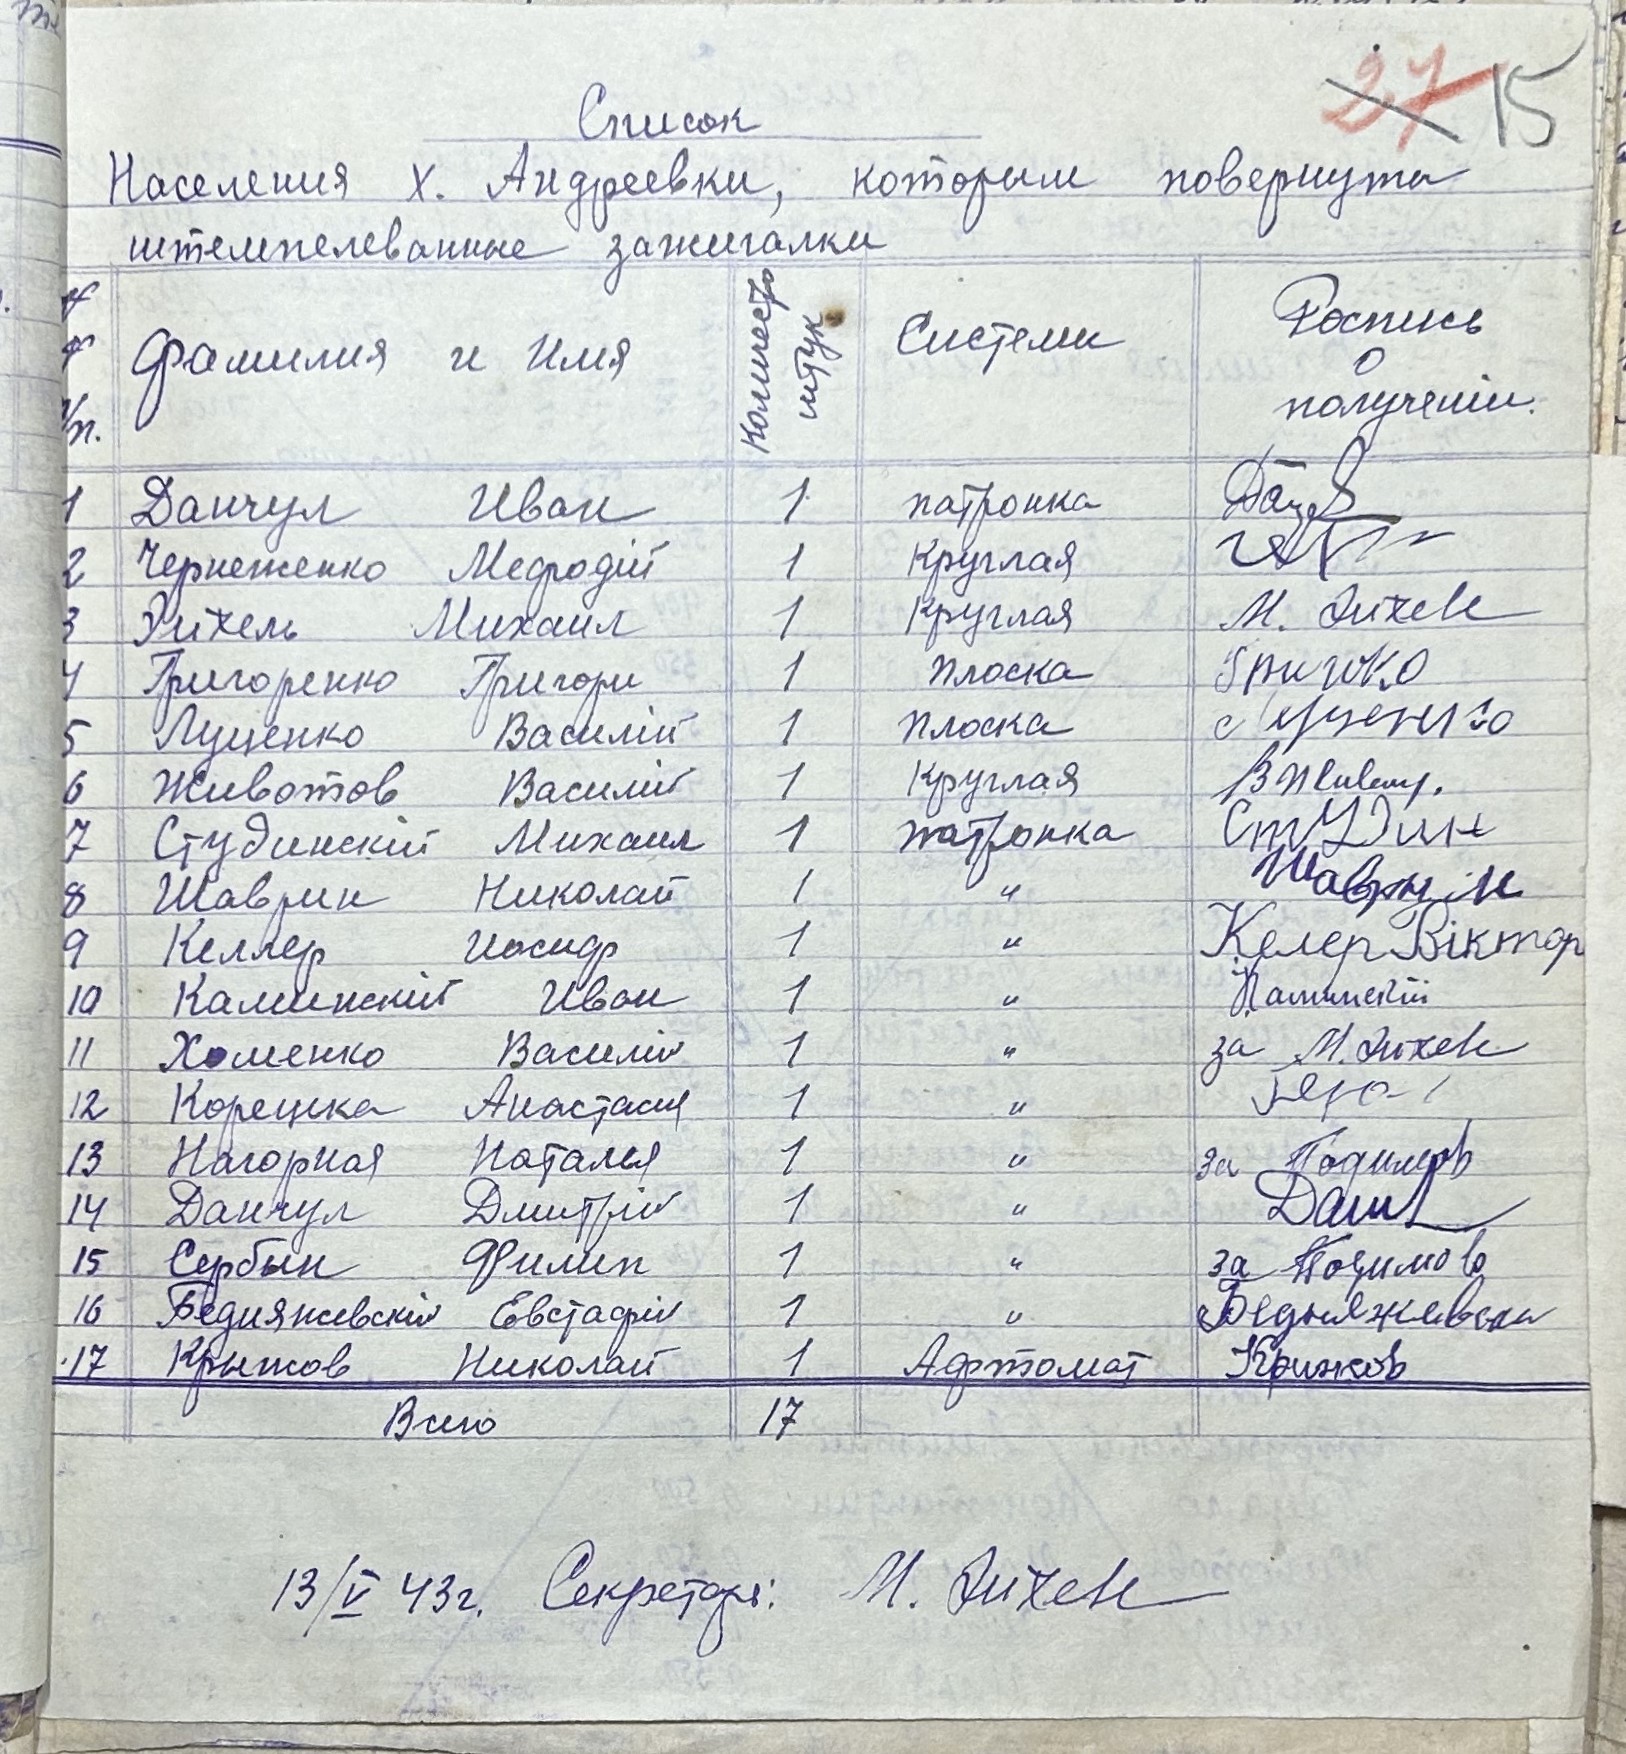 27 15
Список
Населения х. Андреевки, которым повернута
штемпелеванные зажигалки
Фамилия и Имя Количество штук Системи Роспись о получении.
1 Данчул Иван 1 патронка
2 Чернеженко Мефодій 1 Круглая
3 Эйхель Михаил 1 Круглая М.
4 Григоренко Григори 1 плоска
5 Луценко Василій 1 плоска Луценко
6 Животов Василій 1 Круглая В Живот.
7 Студинскій Михаил 1 патронка Студин
8 Шаврин Николай 1 " Шаврин
9 Келлер Иосиф 1 " Келер Віктор
10 Каминскій Иван 1 " Каминскій
11 Хоменко Василій 1 " за М.
12 Корецка Анастасия 1 "
13 Нагорная Наталья 1 " за
14 Данчул Дмитрій 1 "
15 Сербин Филип 1 " за
16 Бедняжевскій Евстафій 1 "
17 Крыжов Николай 1 Афтомат Крижов
Всего 17
13/V 43г. Секретарь: М.